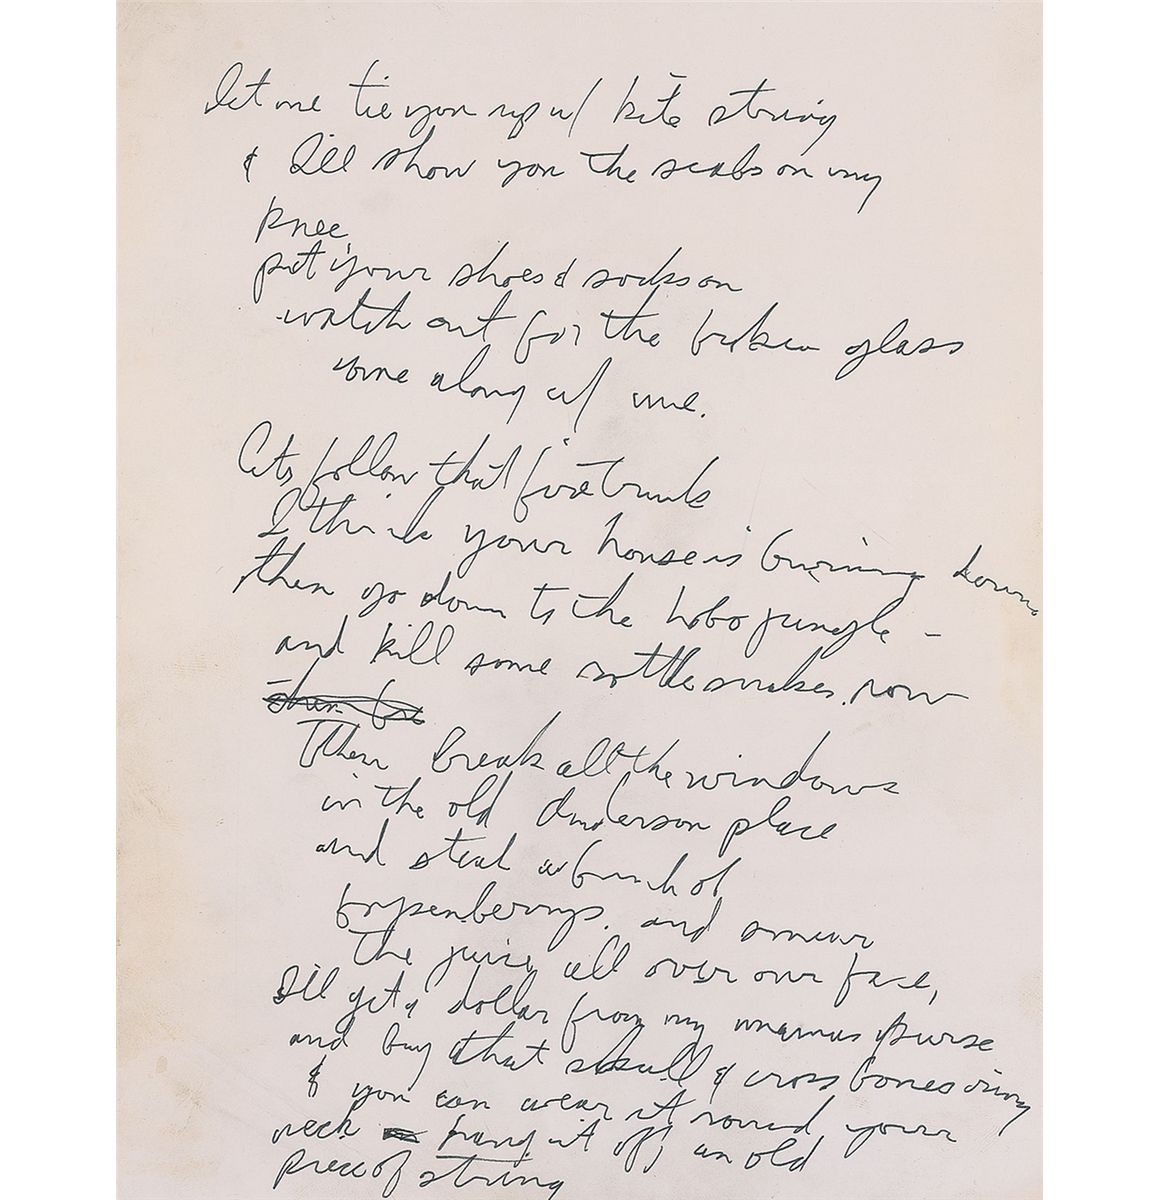 let me tie you up w/ kite string
& I'll show you the scabs on my
knee
put your shoes & socks on
watch out for the broken glass
come along w/ me.
lets follow that fire truck
I think your house is burning down
then go down to the hobo jungle -
and kill some rattle snakes. now
then
Then break all the windows
in the old anderson place
and steal a bunch of
boysenberrys. and smear
the juice all over our face,
I'll get a dollar from my mamas purse
and buy that skull & cross bones ring
& you can wear it round your
neck hang it off an old
piece of string